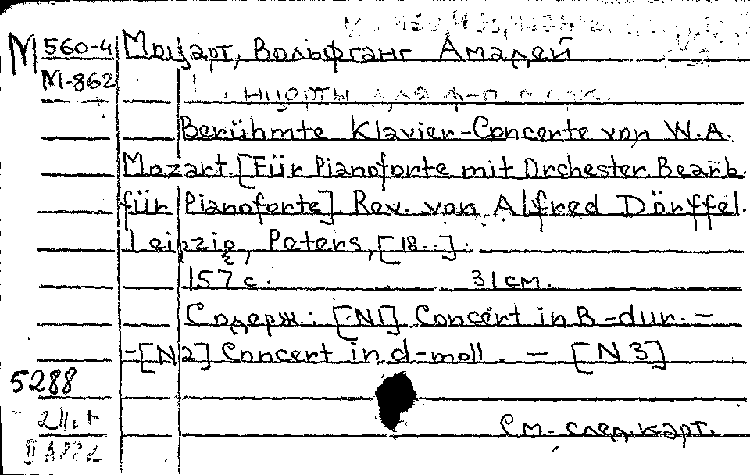 М 560-4 Моцарт, Вольфганг Амадей
М-862
Berühmte Klavier-Concerte von W.A.
Mozart [Für Pianoforte mit Orchester Bearb.
für Pianoforte] Rev. von Alfred Dörffel.
Leipzig, Peters, [18..].
157 с. 31 см.
Содерж: [N1] Concert in B-dur. –
-[N2] Concert in d-moll. – [N3]
5288
См. след. карт.